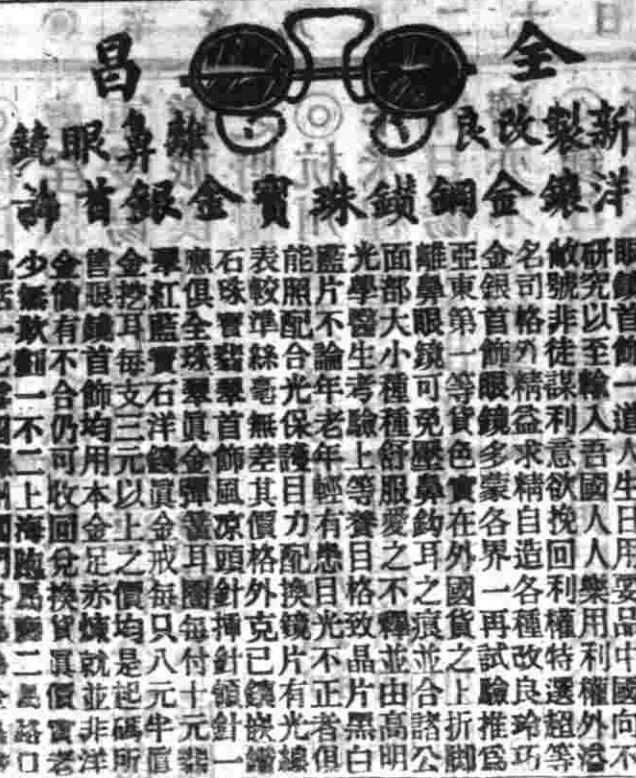 全昌
新製改良離鼻眼鏡
洋鑲金鋼鑽珠寶金銀首飾
眼鏡首飾一道人生日用要品中國向不
研究以至輸入吾國人人樂用利權外溢
敝號非徒謀利意欲挽回利權特選超等
名司格外精益求精自造各種改良玲巧
金銀首飾眼鏡多蒙各界一再試驗推爲
亞東第一等貨色實在外國貨之上折脚
離鼻眼鏡可免壓鼻鈎耳之痕並合諸公
面部大小種種舒服愛之不釋並由高明
光學醫生考驗上等養目格致晶片黑白
藍片不論年老年輕有患目光不正者俱
能照配合光保護目力配換鏡片有光線
表較準絲毫無差其價格外克己鑲嵌鑽
石珠寶翡翠首飾風凉頭針揷針領針一
應俱全珠翠眞金彈簧耳圈每付十元翡
翠紅藍寶石洋鑲眞金戒每只八元半眞
金挖耳每支三元以上之價均是起碼所
售眼鏡首飾均用本金足赤煉就並非洋
金倘有不合仍可收回兌換貨眞價實老
少無欺劃一不二上海馬二馬路口
電話一七